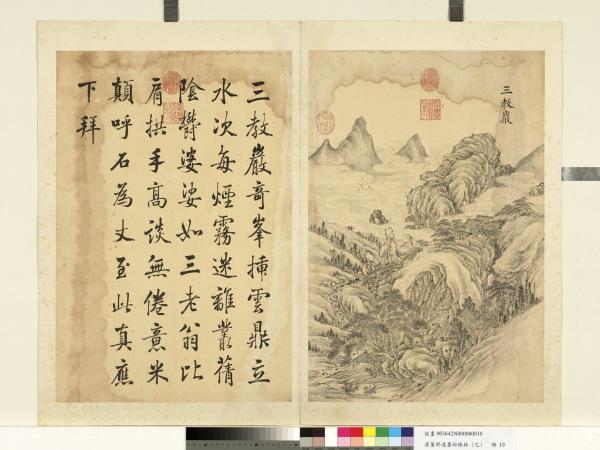 三教巖
三教巖奇峯插雲鼎立
水次每煙霧迷離叢蒨
陰鬱婆娑如三老翁比
肩拱手高談無倦意米
顛呼石為丈至此真應
下拜
故畫 003642N000000010
清董邦達墨妙珠林（巳） 冊 10